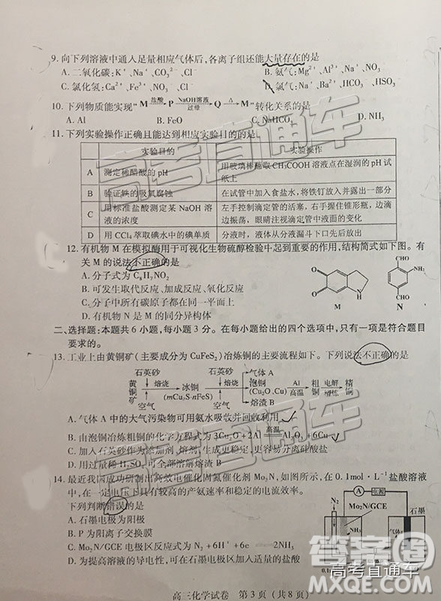 9.向下列溶液中通入足量相应气体后,各离子组还能大量存在的是
A.二氧化碳:K⁺、Na⁺、CO₃²⁻、Cl⁻ B.氨气:Mg²⁺、Al³⁺、Na⁺、NO₃⁻
C.氯化氢:Ca²⁺、Fe³⁺、NO₃⁻、Cl⁻
10.下列物质能实现"M 盐酸 P NaOH溶液 过量 Q △ M"转化关系的是
A.Al B.Fe C.NaHCO₃ D.NH₃
11.下列实验操作正确且能达到相应实验目的的是
实验目的 实验操作
A 测定稀醋酸的pH 用玻璃棒蘸取CH₃COOH溶液点在湿润的pH试纸上
B 验证铁的吸氧腐蚀 在试管中加入食盐水,将铁钉放入并露出一部分
C 用标准盐酸测定某NaOH溶液的浓度 左手控制滴定管的活塞,右手握住锥形瓶,边滴边振荡,眼睛注视滴定管中液面的变化
D 用CCl₄萃取碘水中的碘单质 分液时,液体从分液漏斗下口先后放出
12.有机物M在模拟酶用于可视化生物硫醇检验中起到重要的作用,结构简式如下图。有
关M的说法不正确的是
A.分子式为C₈H₇NO₂
B.可发生取代反应、加成反应、氧化反应
C.分子中所有碳原子都在同一平面上
D.有机物N是M的同分异构体
M N
二、选择题:本题共6小题,每小题3分。在每小题给出的四个选项中,只有一项是符合题目
要求的。
13.工业上由黄铜矿(主要成分为CuFeS₂)冶炼铜的主要流程如下。下列说法不正确的是
石英砂 石英砂 气体A
黄铜矿 熔烧 冰铜 (mCu₂S·nFeS) 熔烧 泡铜 (Cu₂O、Cu) Al 高温 粗铜 电解 精铜
A.气体A中的大气污染物可用氨水吸收并回收利用
B.由泡铜冶炼粗铜的化学方程式为3Cu₂O+2Al 高温 Al₂O₃+6Cu
C.加入石英砂作为添加剂,熔渣生成更稳定,更容易与铜分离
D.用过量稀H₂SO₄可全部溶解熔渣B
14.最近我国成功研制出高效电催化固氮催化剂Mo₂N,如图所示,在0.1mol·L⁻¹盐酸溶液
中,在一定电压下具有较高的产氨速率和稳定的电流效率。
下列判断错误的是
A.石墨电极为阳极
B.P为阴离子交换膜
C.Mo₂N/GCE电极区反应式为N₂+6H⁺+6e⁻ 2NH₃
Mo₂N/GCE 石墨电极
高三化学试卷 第3页(共8页)
高考直通车
答案圈
MXQE.COM
高考直通车